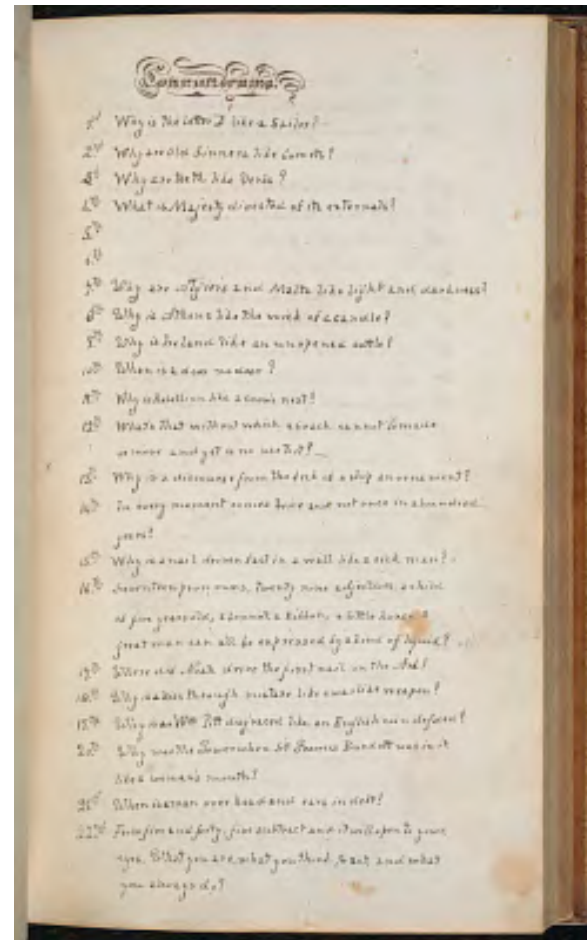 Conundrums.
1st Why is the letter I like a Sailor?
2nd Why are Old Sinners like Comets?
3d Why are teeth like Verbs?
4th What is Majesty divested of its externals?
5th
6th
7th Why are and Malta like light and darkness?
8th Why is Athens like the wick of a candle?
9th Why is Ireland like an unopened bottle?
10th When is a door no door?
11th Why is Rebellion like a crow's nest?
12th What's that without which a coach cannot
or move and yet is no use to it?
13th Why is a discourse from the deck of a ship an ornament?
14th In every moment occurs twice and not once in a hundred
years?
15th Why is a nail driven fast in a wall like a sick man?
16th nouns, twenty nine adjectives, a
of five years old, a bonnet a Ribbon, a little
great man can all be expressed by a kind of liquid?
17th Where did Noah drive the first nail in the Ark?
18th Why is through water like weapon?
19th Why was Wm Pitt like an English defeated?
20th Why was the Tower when Sir Francis Burdett was in it
like a woman's mouth?
21st When is a man over head and ears in debt?
22nd From five and forty, five subtract and it will open to your
eyes, What you are, what you think, & act, and what
you always do?